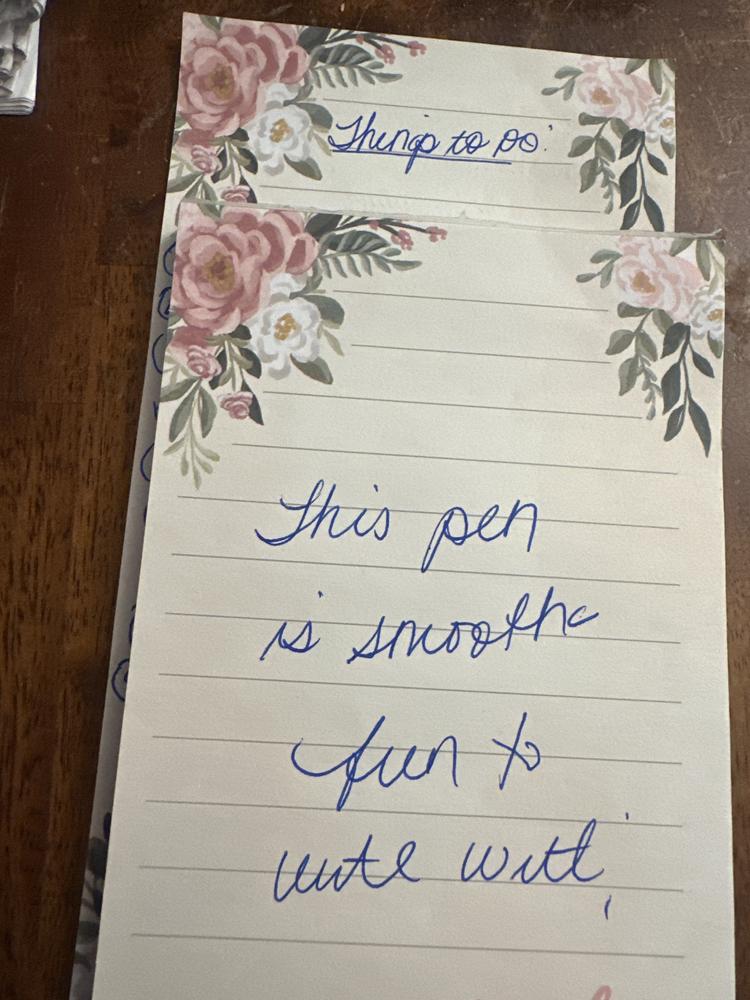 Things to Do:
This pen
is smooth &
fun to
write with!